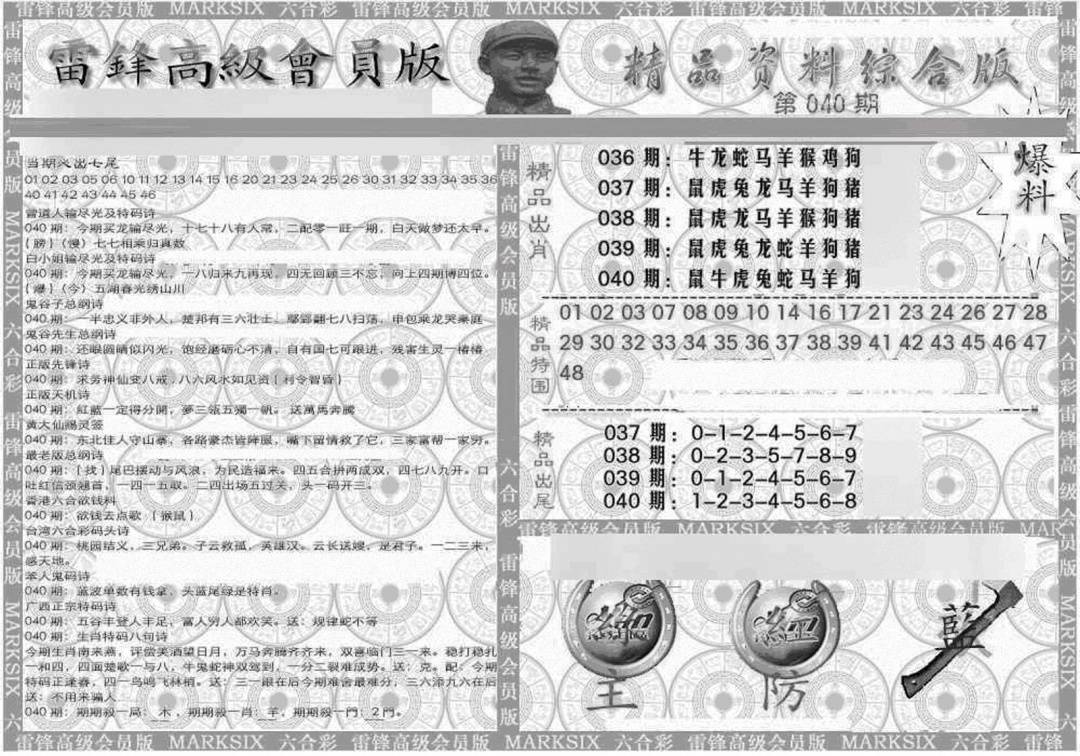 雷锋高级会员版 MARKSIX 六合彩 雷锋高级会员版 MARKSIX 六合彩 雷锋高级会员版 MARKSIX 六合彩
雷鋒高級會員版
精品資料綜合版
第 040 期
爆料
当期必出七尾
01 02 03 05 06 10 11 12 13 14 15 16 20 21 23 24 25 26 30 31 32 33 34 35 36
40 41 42 43 44 45 46
曾道人输尽光及特码诗
040 期：今期买龙输尽光，十七十八有人常，二配零一旺一期，白天做梦还太早。
{ 膀 }（慢）七七相乘归真数
白小姐输尽光及特码诗
040 期：今期买龙输尽光，一八归来九再现，四无回顾三不忘，向上四期博四位。
{ 爆 }（今）五湖春光绣山川
鬼谷子总纲诗
040 期：一半忠义非外人，楚邦有三六壮士，鄢郢翻七八扫荡，申包乘龙哭秦庭
鬼谷先生总纲诗
040 期：还眼圆睛似闪光，饱经磨砺心不清，自有国七可跟进，残害生灵一椿椿
正版先锋诗
040 期：求务神仙变八戒，八六风水如见资 { 利令智昏 }
正版天机诗
040 期：紅藍一定得分開，夢三瓴五獨一帆。 送萬馬奔騰
黄大仙赐灵签
040 期：东北佳人守山寨，各路豪杰皆降服，嘴下留情救了它，三家富帮一家穷。
最老版总纲诗
040 期：{ 找 } 尾巴摆动与风浪，为民造福来。四五合拼两成双，四七八九开。口
吐红信颈翘首，一四一五取。二四出场五过关，头一码开三。
香港六合欲钱料
040 期：欲钱去点歌 { 猴鼠 }
台湾六合彩码头诗
040 期：桃园结义，三兄弟。子云救孤，英雄汉。云长送嫂，是君子。一二三来，
感天地。
本人鬼码诗
040 期：蓝波单数有钱拿，头蓝尾绿是特肖。
广西正宗特码诗
040 期：五谷丰登人丰足，富人穷人都欢笑。送：规律蛇不等
040 期：生肖特码八句诗
今期生肖南来燕，评偿美酒望日月，万马奔腾齐齐来，双喜临门三一来。稳打稳扎
一和四，四面楚歌一与八，牛鬼蛇神双驾到，一分二裂难成势。送：克。配：今期
特码正逢春，四一鸟鸣飞林梢。送：三一跟在后今期难舍最难分，三六添九六在后
送：不用来骗人
040 期：期期殺一局：木，期期殺一肖：羊，期期殺一門：2 門。
精品出肖
036 期：牛龙蛇马羊猴鸡狗
037 期：鼠虎兔龙马羊狗猪
038 期：鼠虎龙马羊猴狗猪
039 期：鼠虎兔龙蛇羊狗猪
040 期：鼠牛虎兔蛇马羊狗
精品特围
01 02 03 07 08 09 10 14 16 17 21 23 24 26 27 28
29 30 32 33 34 35 36 37 38 39 41 42 43 45 46 47
48
精品出尾
037 期：0-1-2-4-5-6-7
038 期：0-2-3-5-7-8-9
039 期：0-1-2-4-5-6-7
040 期：1-2-3-4-5-6-8
雷锋高级会员版 MARKSIX 六合彩 雷锋高级会员版 MARKSIX
綠 紅 藍
主 防
雷锋高级会员版 MARKSIX 六合彩 雷锋高级会员版 MARKSIX 六合彩 雷锋高级会员版 MARKSIX 六合彩 雷锋高级